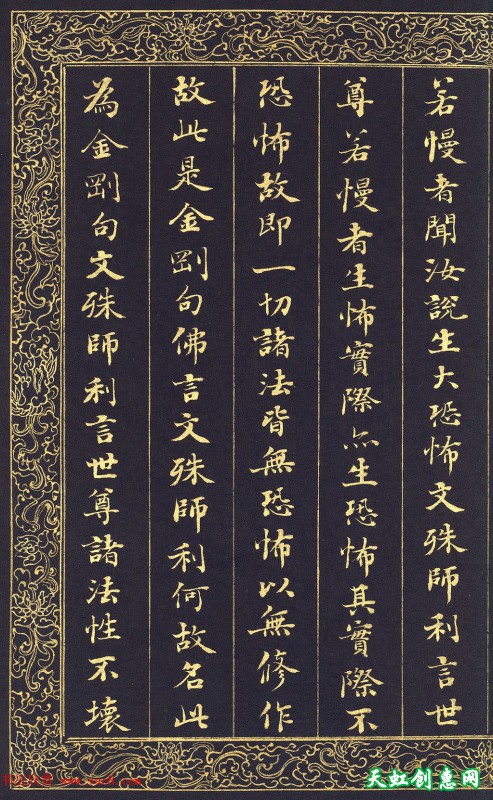 若慢者聞汝說生大恐怖文殊師利言世
尊若慢者生怖實際亦生恐怖其實際不
恐怖故即一切諸法皆無恐怖以無修作
故此是金剛句佛言文殊師利何故名此
為金剛句文殊師利言世尊諸法性不壞
天虹创惠网